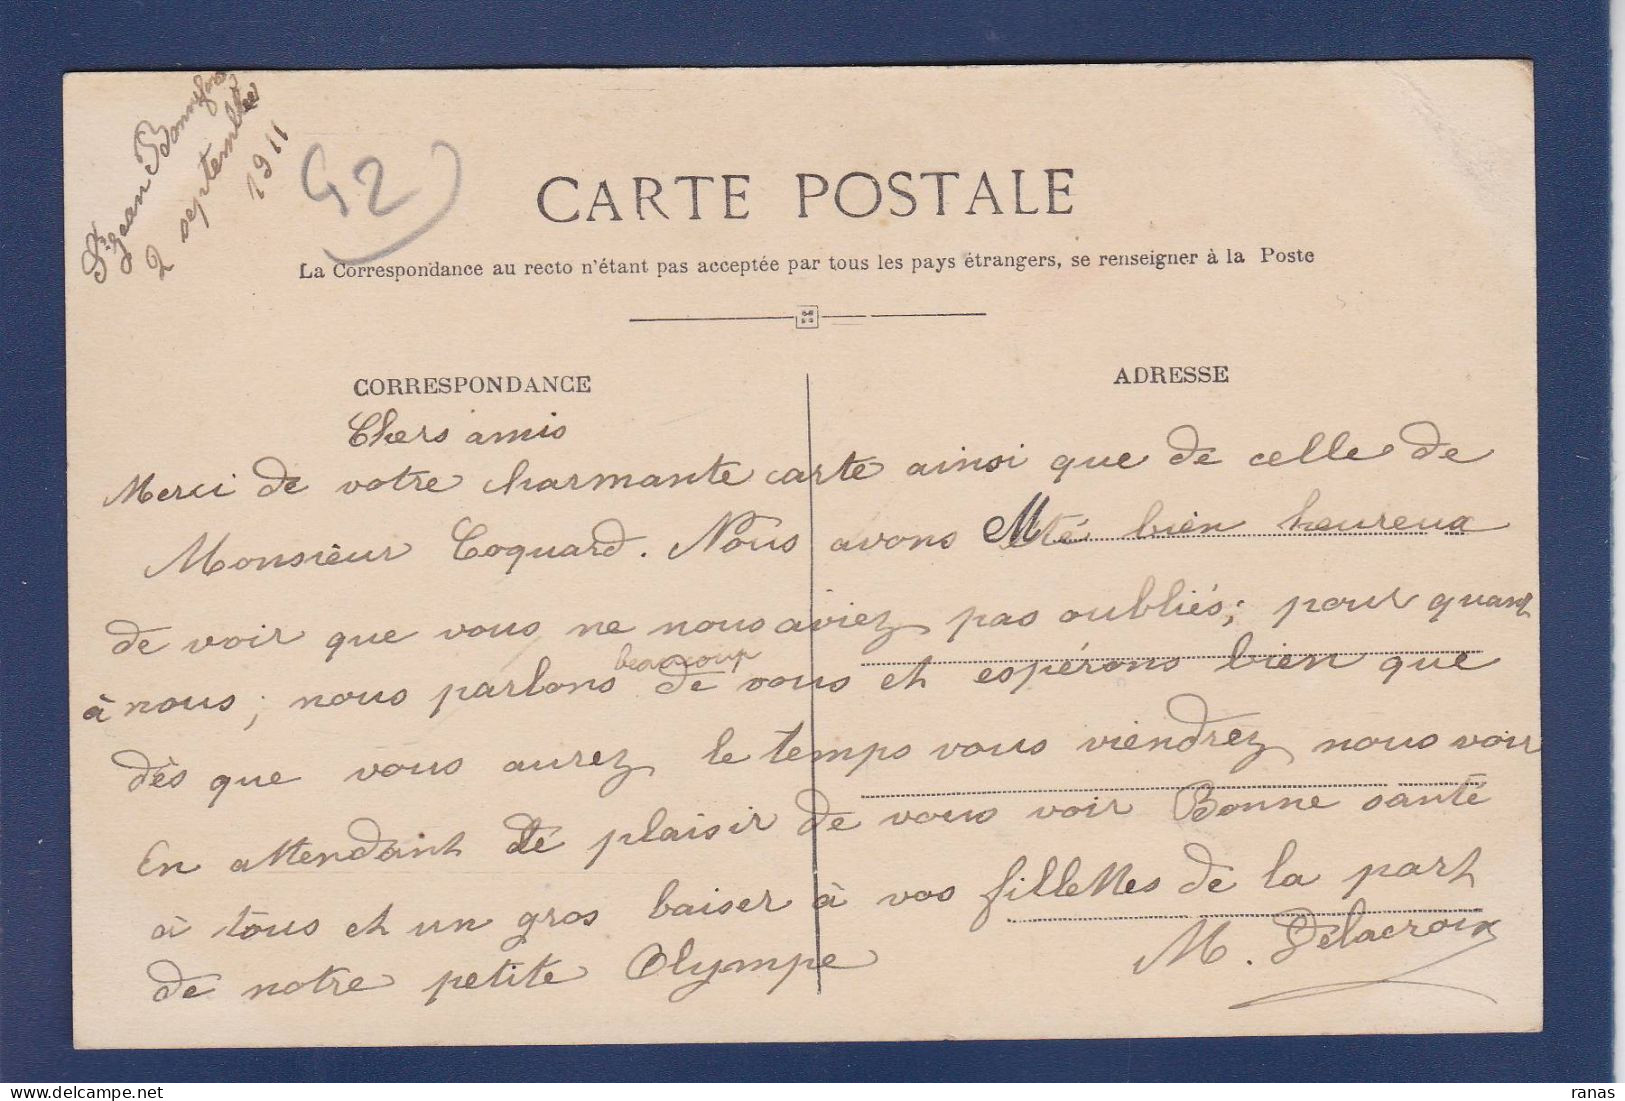 St Jean Bonnefonds
2 septembre
1911
42
CARTE POSTALE
La Correspondance au recto n'étant pas acceptée par tous les pays étrangers, se renseigner à la Poste
CORRESPONDANCE
ADRESSE
Chers amis
Merci de votre charmante carte ainsi que de celle de
Monsieur Coquard. Nous avons M été bien heureux
de voir que vous ne nous aviez pas oubliés; pour quant
à nous; nous parlons beaucoup de vous et espérons bien que
dès que vous aurez le temps vous viendrez nous voir
En attendant le plaisir de vous voir Bonne santé
à tous et un gros baiser à vos fillettes de la part
de notre petite Olympe
M. Delacroix
ranas